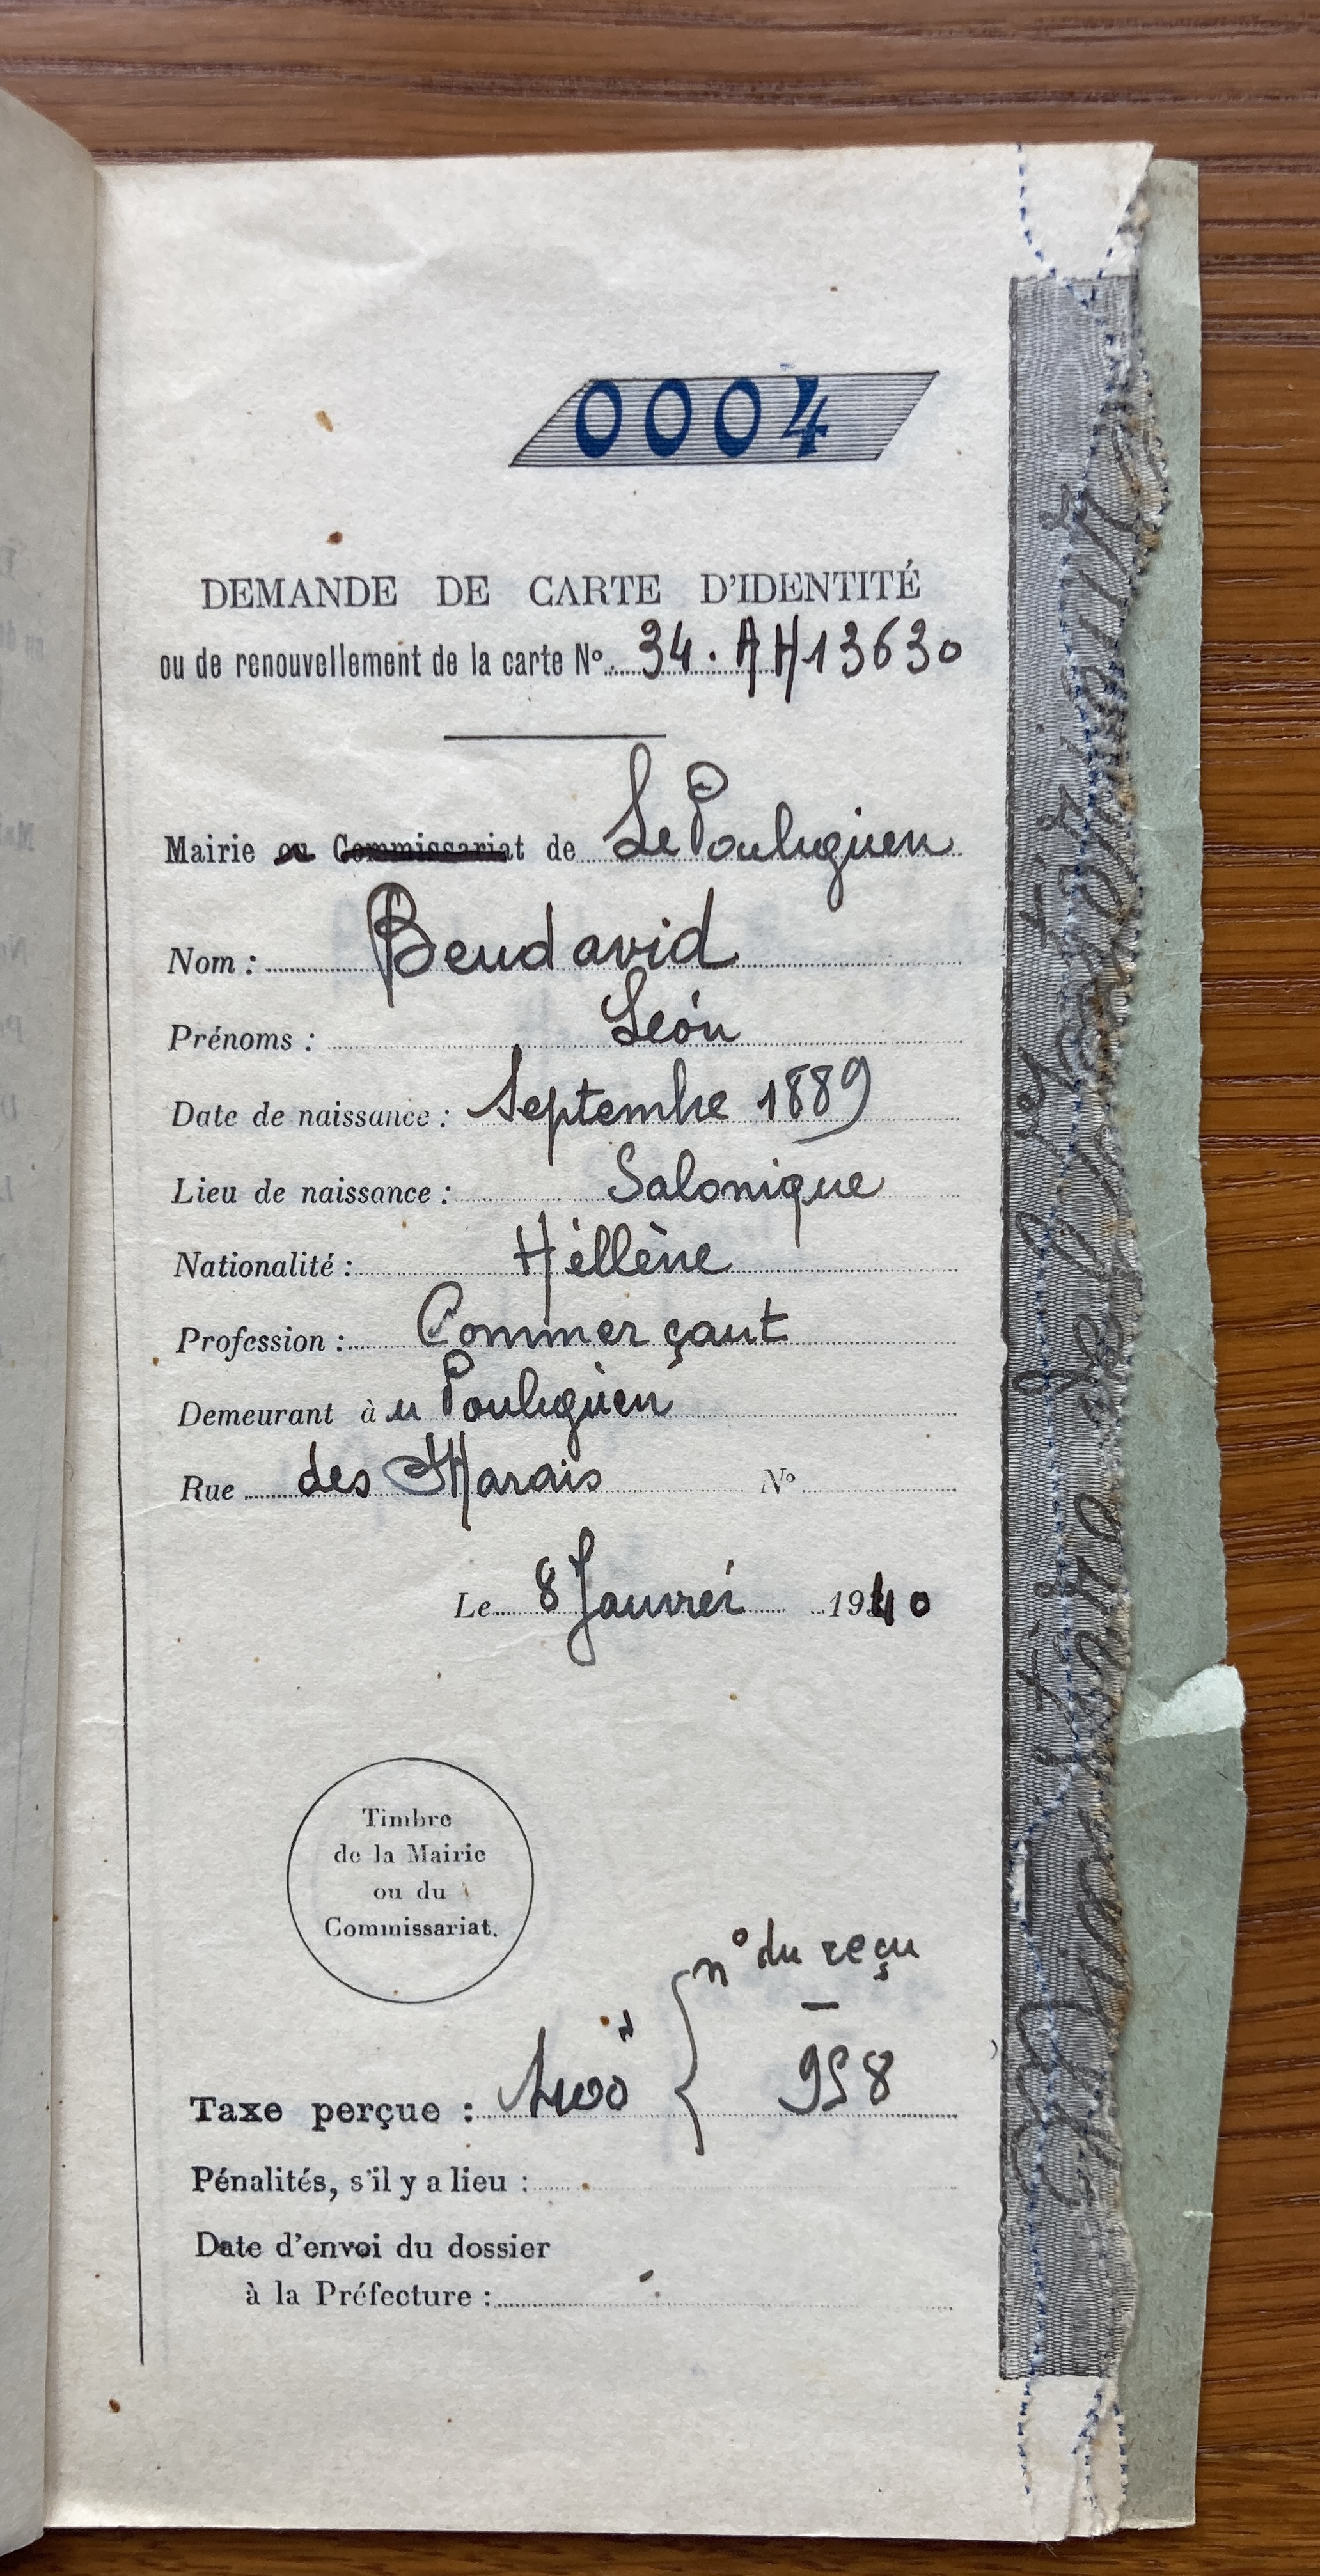 0004
DEMANDE DE CARTE D'IDENTITÉ
ou de renouvellement de la carte No. 34. AH13630
Mairie ou Commissariat de Le Pouliguen
Nom : Bendavid
Prénoms : Léon
Date de naissance : Septembre 1889
Lieu de naissance : Salonique
Nationalité : Héllène
Profession : Commerçant
Demeurant à u Pouliguen
Rue des Marais No
Le 8 Janvier 1940
Timbre
de la Mairie
ou du
Commissariat.
n° du reçu
958
Taxe perçue :
Pénalités, s'il y a lieu :
Date d'envoi du dossier
à la Préfecture :